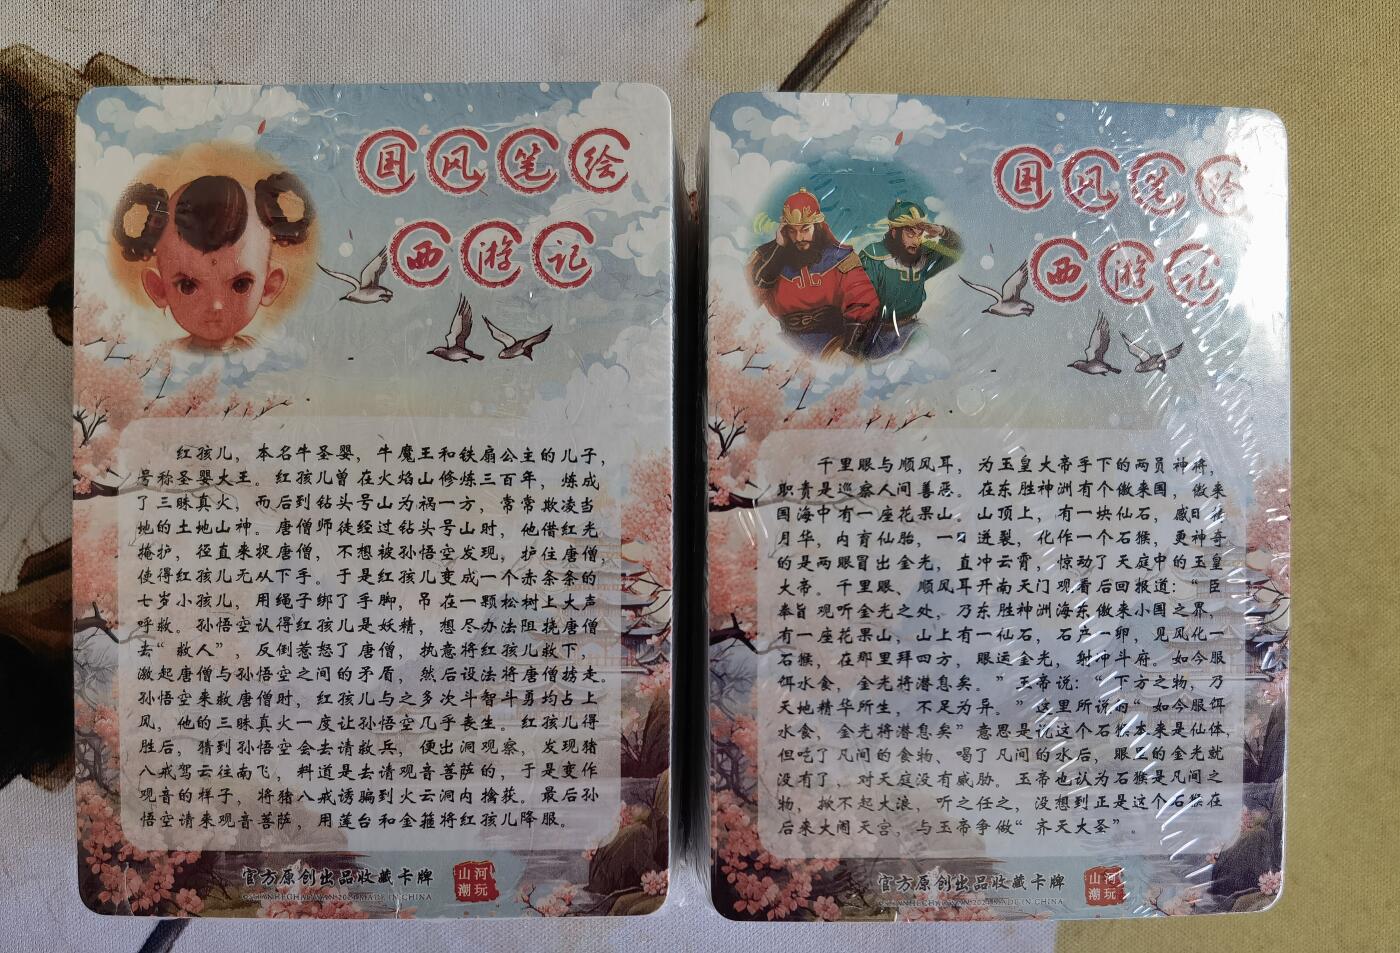 国风笔绘
西游记
红孩儿，本名牛圣婴，牛魔王和铁扇公主的儿子，
号称圣婴大王。红孩儿曾在火焰山修炼三百年，炼成
了三昧真火，而后到钻头号山为祸一方，常常欺凌当
地的土地山神。唐僧师徒经过钻头号山时，他借红光
掩护，径直来捉唐僧，不想被孙悟空发现。护住唐僧，
使得红孩儿无从下手。于是红孩儿变成一个赤条条的
七岁小孩儿，用绳子绑了手脚，吊在一颗松树上大声
呼救。孙悟空认得红孩儿是妖精，想尽办法阻挠唐僧
去“救人”，反倒惹怒了唐僧，执意将红孩儿救下，
激起唐僧与孙悟空之间的矛盾，然后设法将唐僧掳走。
孙悟空来救唐僧时，红孩儿与之多次斗智斗勇均占上
风，他的三昧真火一度让孙悟空几乎丧生。红孩儿得
胜后，猜到孙悟空会去请救兵，便出洞观察，发现猪
八戒驾云往南飞，料道是去请观音菩萨的，于是变作
观音的样子，将猪八戒诱骗到火云洞内擒获。最后孙
悟空请来观音菩萨，用莲台和金箍将红孩儿降服。
官方原创出品收藏卡牌
山河
潮玩
国风笔绘
西游记
千里眼与顺风耳，为玉皇大帝手下的两员神将，
职责是巡察人间善恶。在东胜神洲有个傲来国，傲来
国海中有一座花果山。山顶上，有一块仙石，感日精
月华，内育仙胎，一日迸裂，化作一个石猴，更神奇
的是两眼冒出金光，直冲云霄，惊动了天庭中的玉皇
大帝。千里眼、顺风耳开南天门观看后回报道：“臣
奉旨观听金光之处，乃东胜神洲海东傲来小国之界，
有一座花果山，山上有一仙石，石产一卵，见风化一
石猴，在那里拜四方，眼运金光，射冲斗府。如今服
饵水食，金光将潜息矣。”玉帝说：“下方之物，乃
天地精华所生，不足为异。”这里所说的“如今服饵
水食，金光将潜息矣”意思是说这个石猴本来是仙体，
但吃了凡间的食物、喝了凡间的水后，眼里的金光就
没有了，对天庭没有威胁。玉帝也认为石猴是凡间之
物，掀不起大浪，听之任之，没想到正是这个石猴在
后来大闹天宫，与玉帝争做“齐天大圣”。
官方原创出品收藏卡牌
山河
潮玩